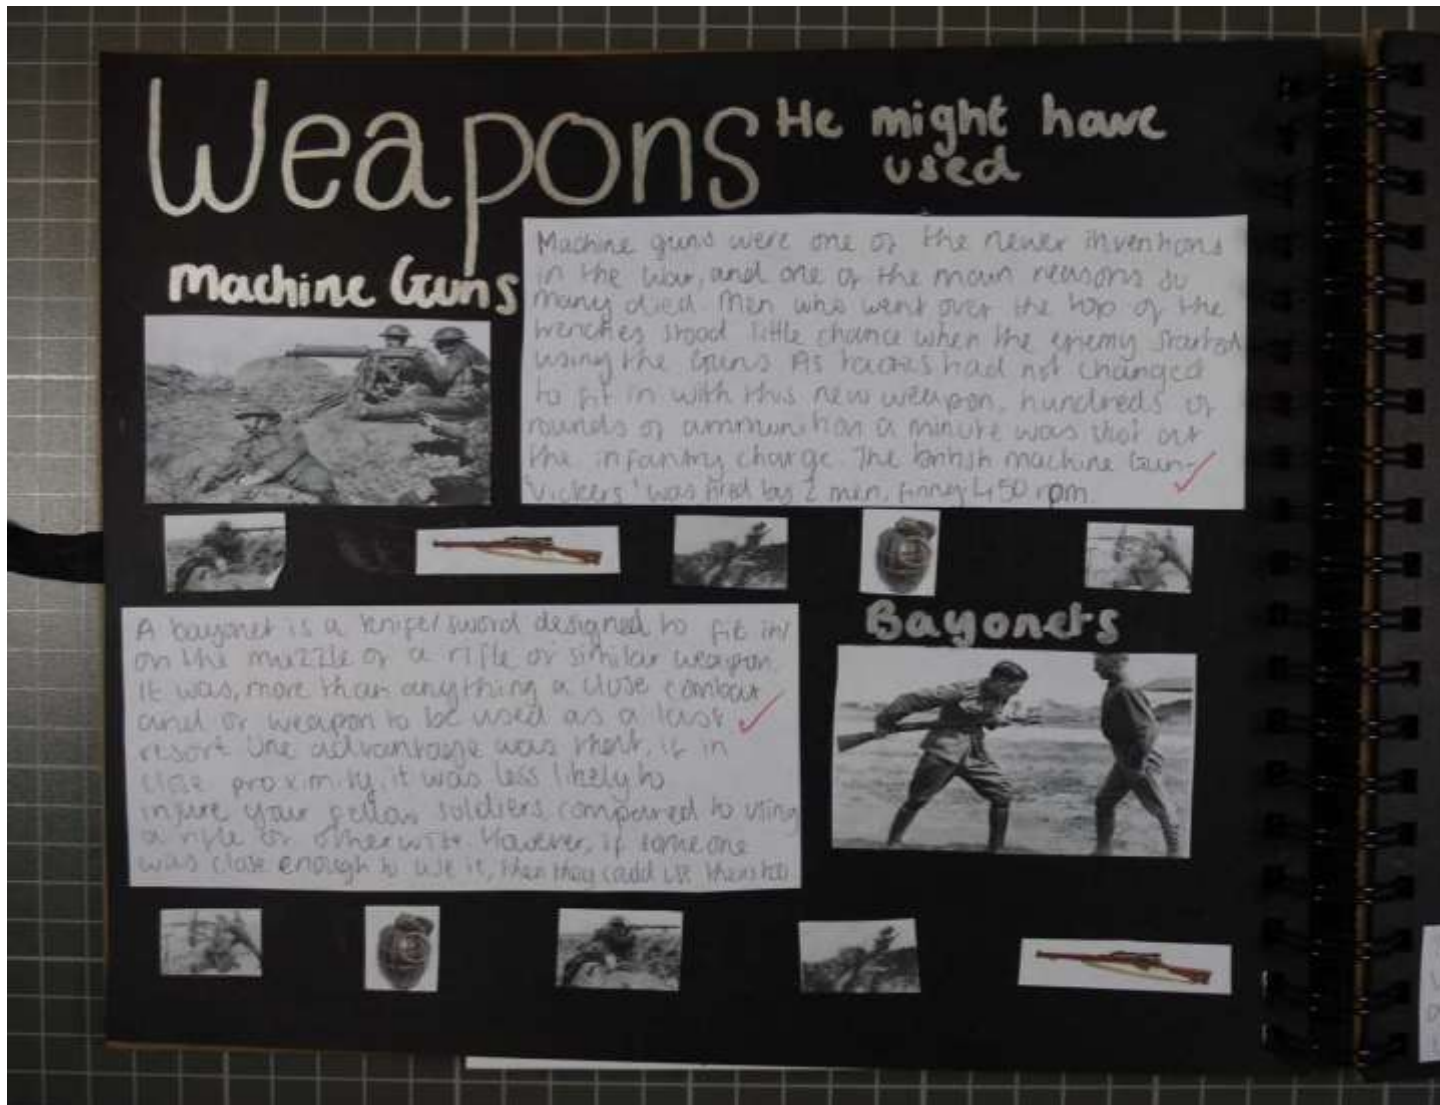 Weapons He might have
used
Machine Guns
Machine guns were one of the newer inventions
in the war, and one of the main reasons so
many died. Men who went over the top of the
trenches stood little chance when the enemy started
using the Guns. As tactics had not changed
to fit in with this new weapon, hundreds of
rounds of ammunition a minute was shot at
the infantry charge. The british machine Gun-
'Vickers' was by 2 men, firing 450 rpm.
Bayonets
A bayonet is a knife/sword designed to fit in/
on the muzzle of a rifle or similar weapon.
It was, more than anything a close combat
and or weapon to be used as a last
resort. One advantage was that, if in
close proximity, it was less likely to
injure your fellow soldiers, compared to using
a rifle or otherwise. However, if someone
was close enough to use it, then they could use theirs too